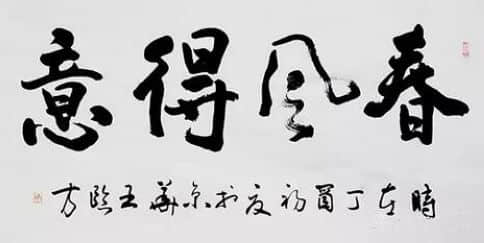 春风得意
時在丁酉初夏於京華王臨方